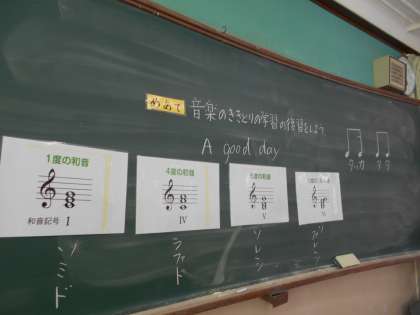 めあて 音楽のききとりの学習の復習をしよう。
A good day
タッカ タタ
1度の和音
和音記号 I
4度の和音
IV
5度の和音
V
ソミド
ラファド
ソレシ